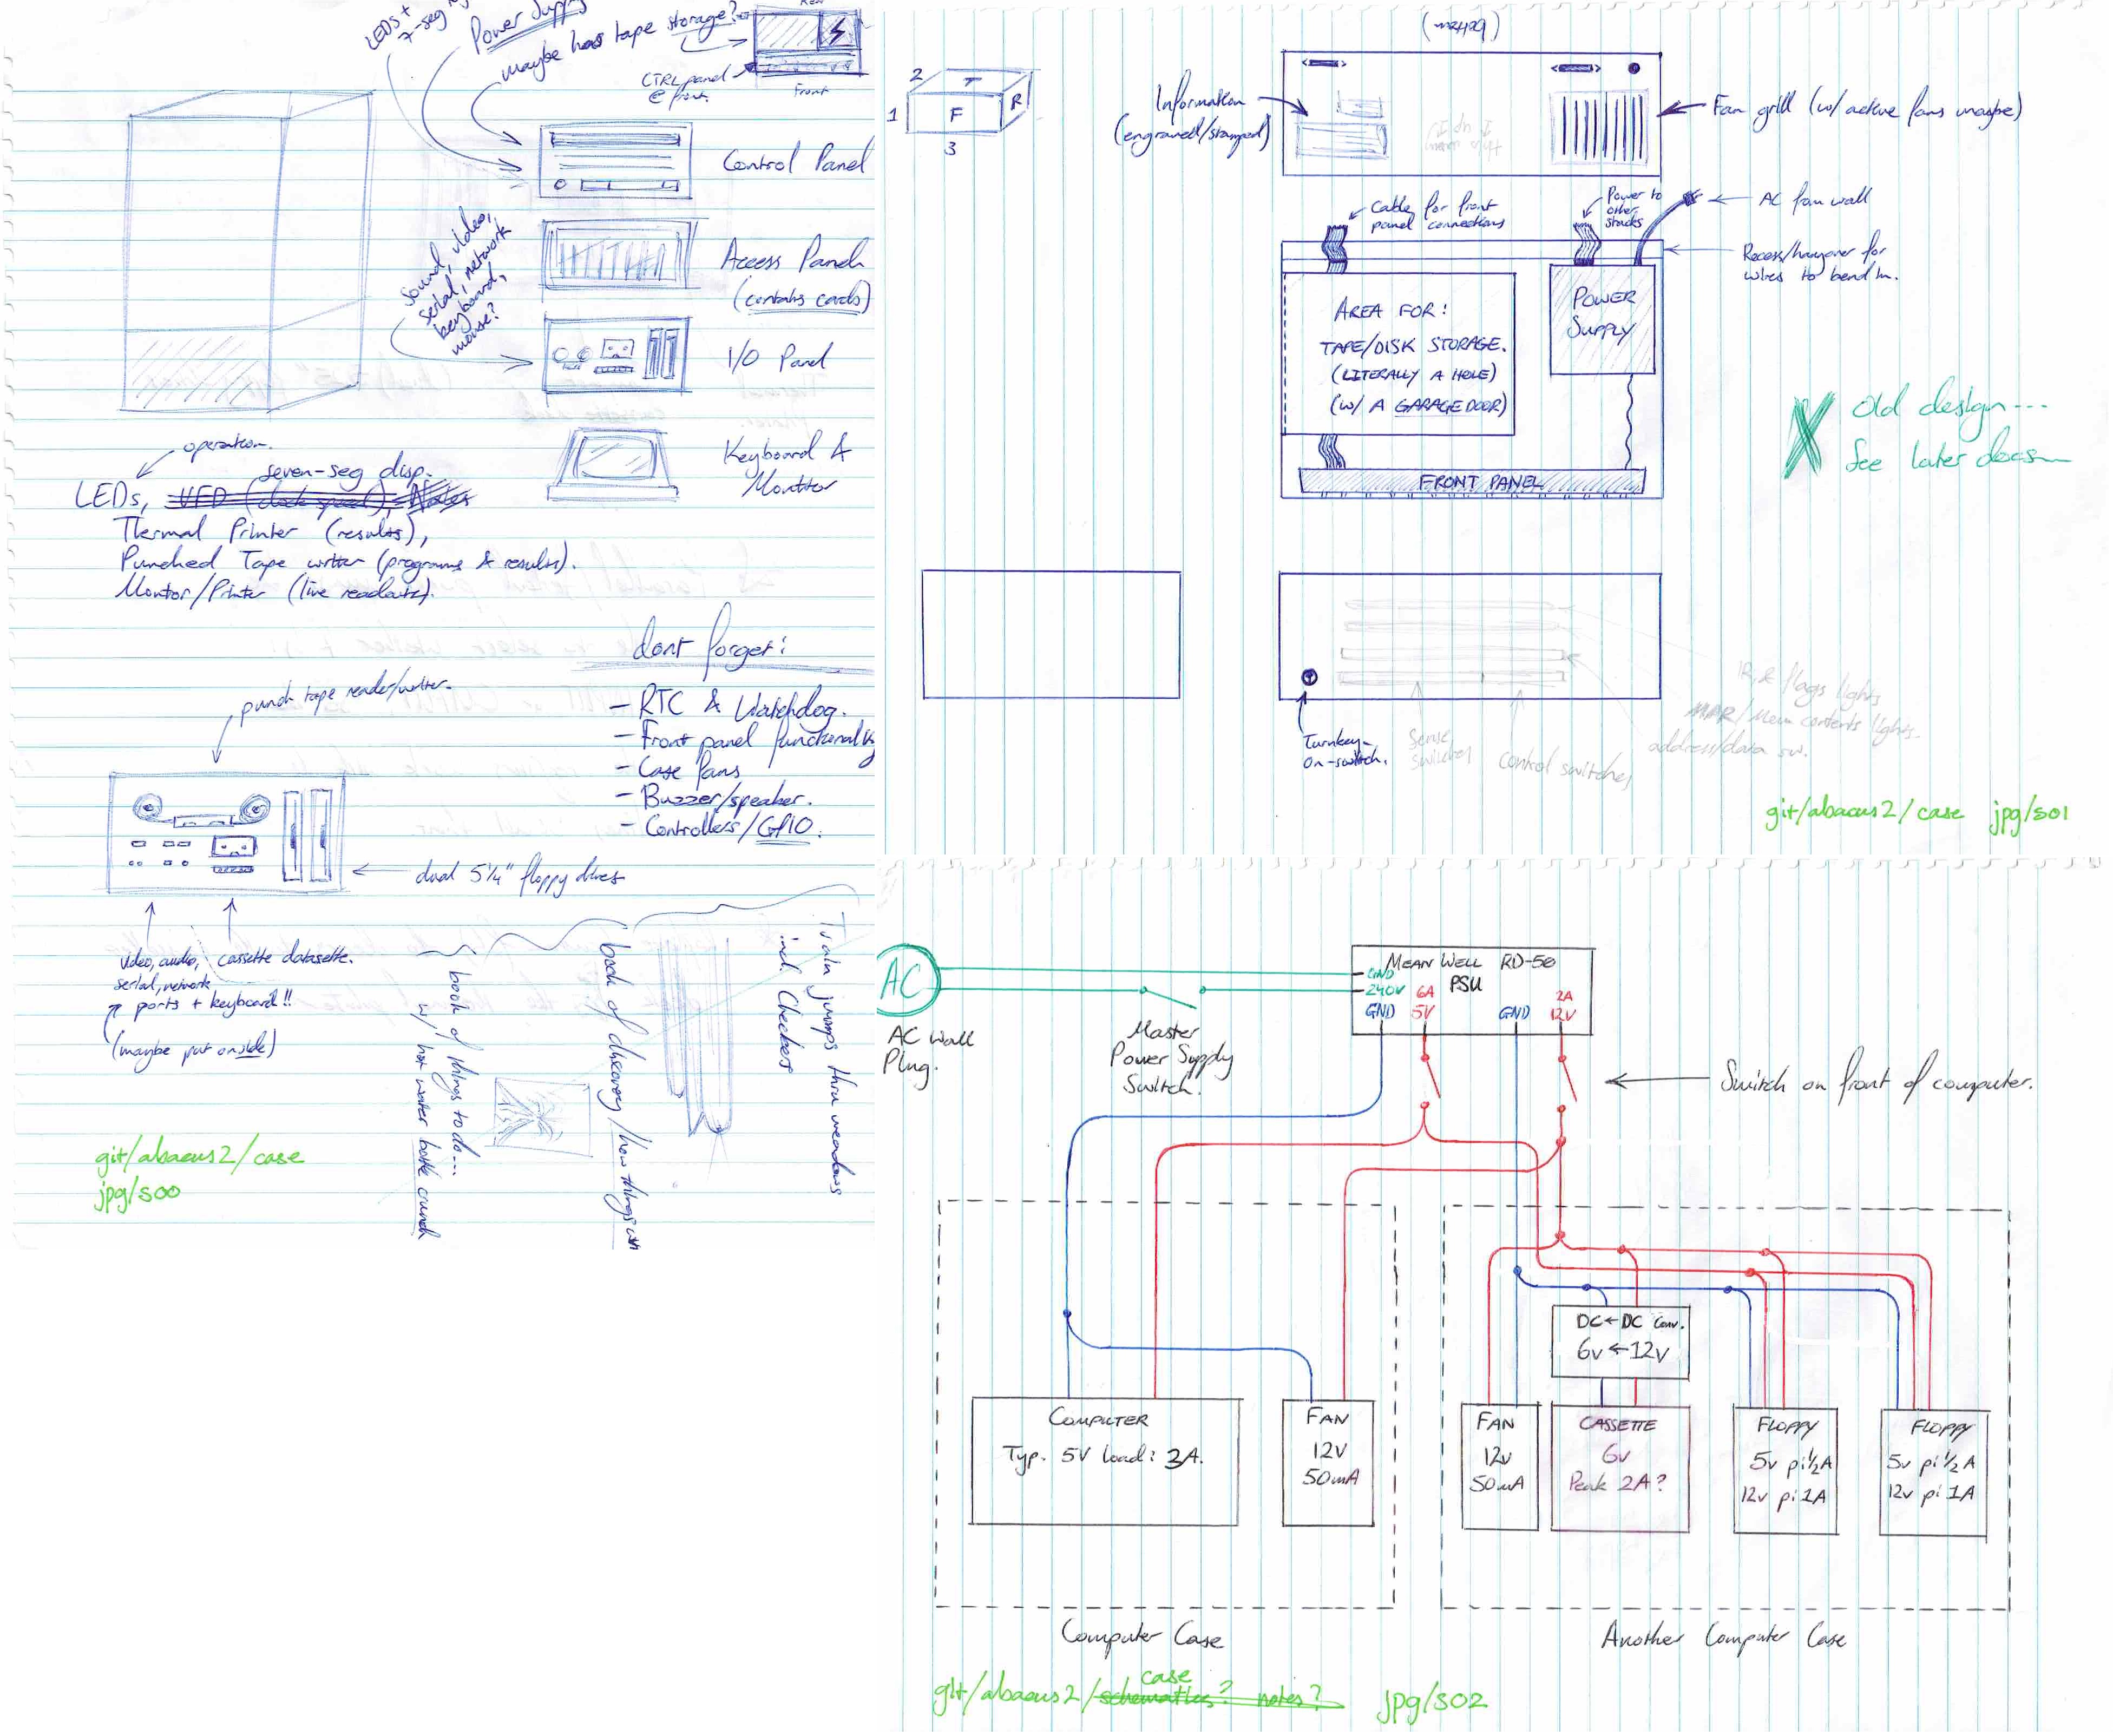 LEDs +
Power Supply
maybe has tape storage?
CTRL panel
@ front.
Front
Control Panel
Access Panel
(contains cards)
Sound, video,
serial, network
keyboard,
mouse?
I/O Panel
Keyboard &
Monitor
operation.
seven-seg disp.
LEDs, VFD (clock speed),
Thermal Printer (results),
Punched Tape writer (programs & results).
Monitor/Printer (live readouts).
dont forget:
- RTC & Watchdog.
- Front panel functionality
- Case fans
- Buzzer/speaker.
- Controllers/GPIO.
punch tape reader/writer.
dual 5¼" floppy drives
video, audio,
serial, network
ports + keyboard!!
(maybe put on side)
cassette datasette.
book of things to do...
w/ hot water bottle
book of discovery/How things
Train jumps thru meadows
incl. Checkers
git/abacus2/case
jpg/s00
2
T
1
F
R
3
(bottom)
Information
(engraved/stamped)
this up
Fan grill (w/ active fans maybe)
Cable for front
panel connections
Power to
other
stacks
AC fan wall
Recess/hangover for
wires to bend in.
AREA FOR:
TAPE/DISK STORAGE.
(LITERALLY A HOLE)
(W/ A GARAGE DOOR)
POWER
SUPPLY
FRONT PANEL
X Old design...
See later docs
Turnkey
on-switch.
Sense
switches
control switches
IR & flags lights
MAR/Mem contents lights
address/data sw.
git/abacus2/case jpg/s01
AC
AC Wall
Plug.
Master
Power Supply
Switch.
MEAN WELL RD-50
PSU
GND
240V
GND
6A
5V
GND
2A
12V
Switch on front of computer.
DC←DC Conv.
6v←12v
COMPUTER
Typ. 5V Load: 2A.
FAN
12V
50mA
FAN
12v
50mA
CASSETTE
6v
Peak 2A?
FLOPPY
5v pi½A
12v pi1A
FLOPPY
5v pi½A
12v pi1A
Computer Case
Another Computer Case
case
git/abacus2/schematics? notes? jpg/s02